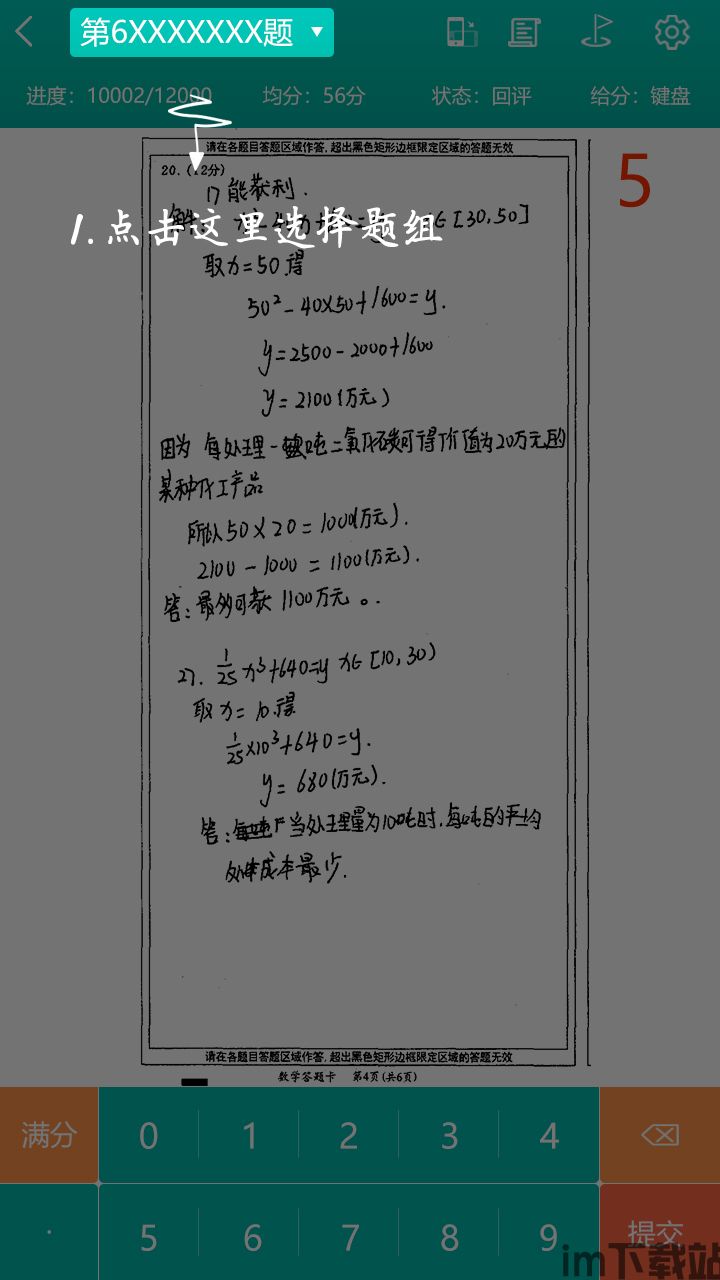 第6XXXXXXX题
进度：10002/12000 均分：56分 状态：回评 给分：键盘
请在各题目答题区域作答，超出黑色矩形边框限定区域的答题无效
20.（12分）
5
1）能获利.
∈[30,50]
1.点击这里选择题组
取x=50得
50²-40×50+1600=y.
y=2500-2000+1600
y=2100(万元)
因为 每处理一吨二氧化碳可得价值为20万元的
某种化工产品
所以50×20=1000(万元).
2100-1000=1100(万元).
答：最多可获1100万元。.
27. 1/25 x³+640=y x∈[10,30)
取x=10得
1/25×10³+640=y.
y=680(万元).
答：当处理量为10吨时，每吨的平均
处理成本最少.
请在各题目答题区域作答，超出黑色矩形边框限定区域的答题无效
数学答题卡 第4页(共6页)
满分 0 1 2 3 4
. 5 6 7 8 9 提交
im下载站